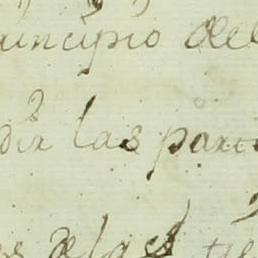 rincipio del
dir las part
es de las tie